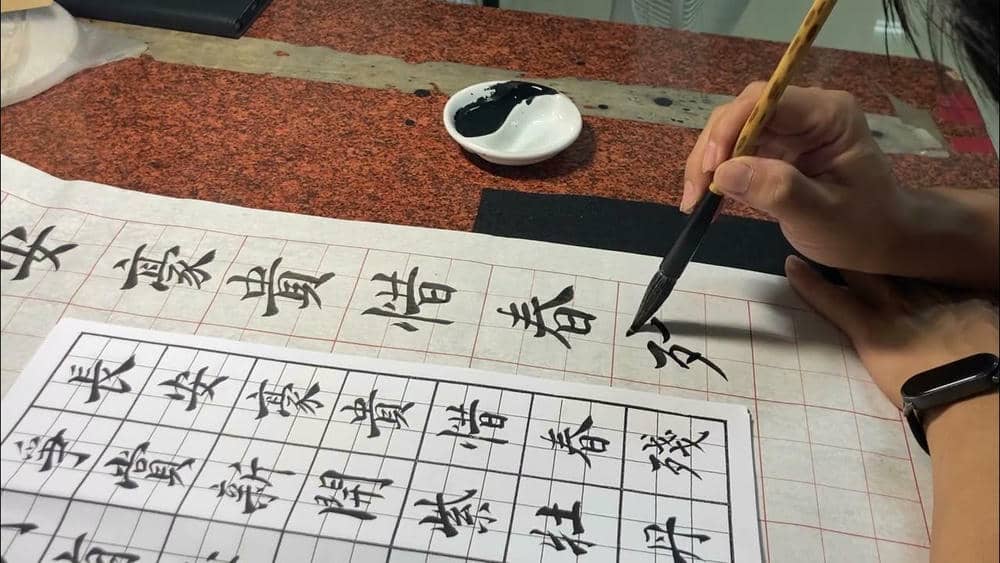 安豪貴惜春
長安豪貴惜春殘
爭賞新開紫牡丹